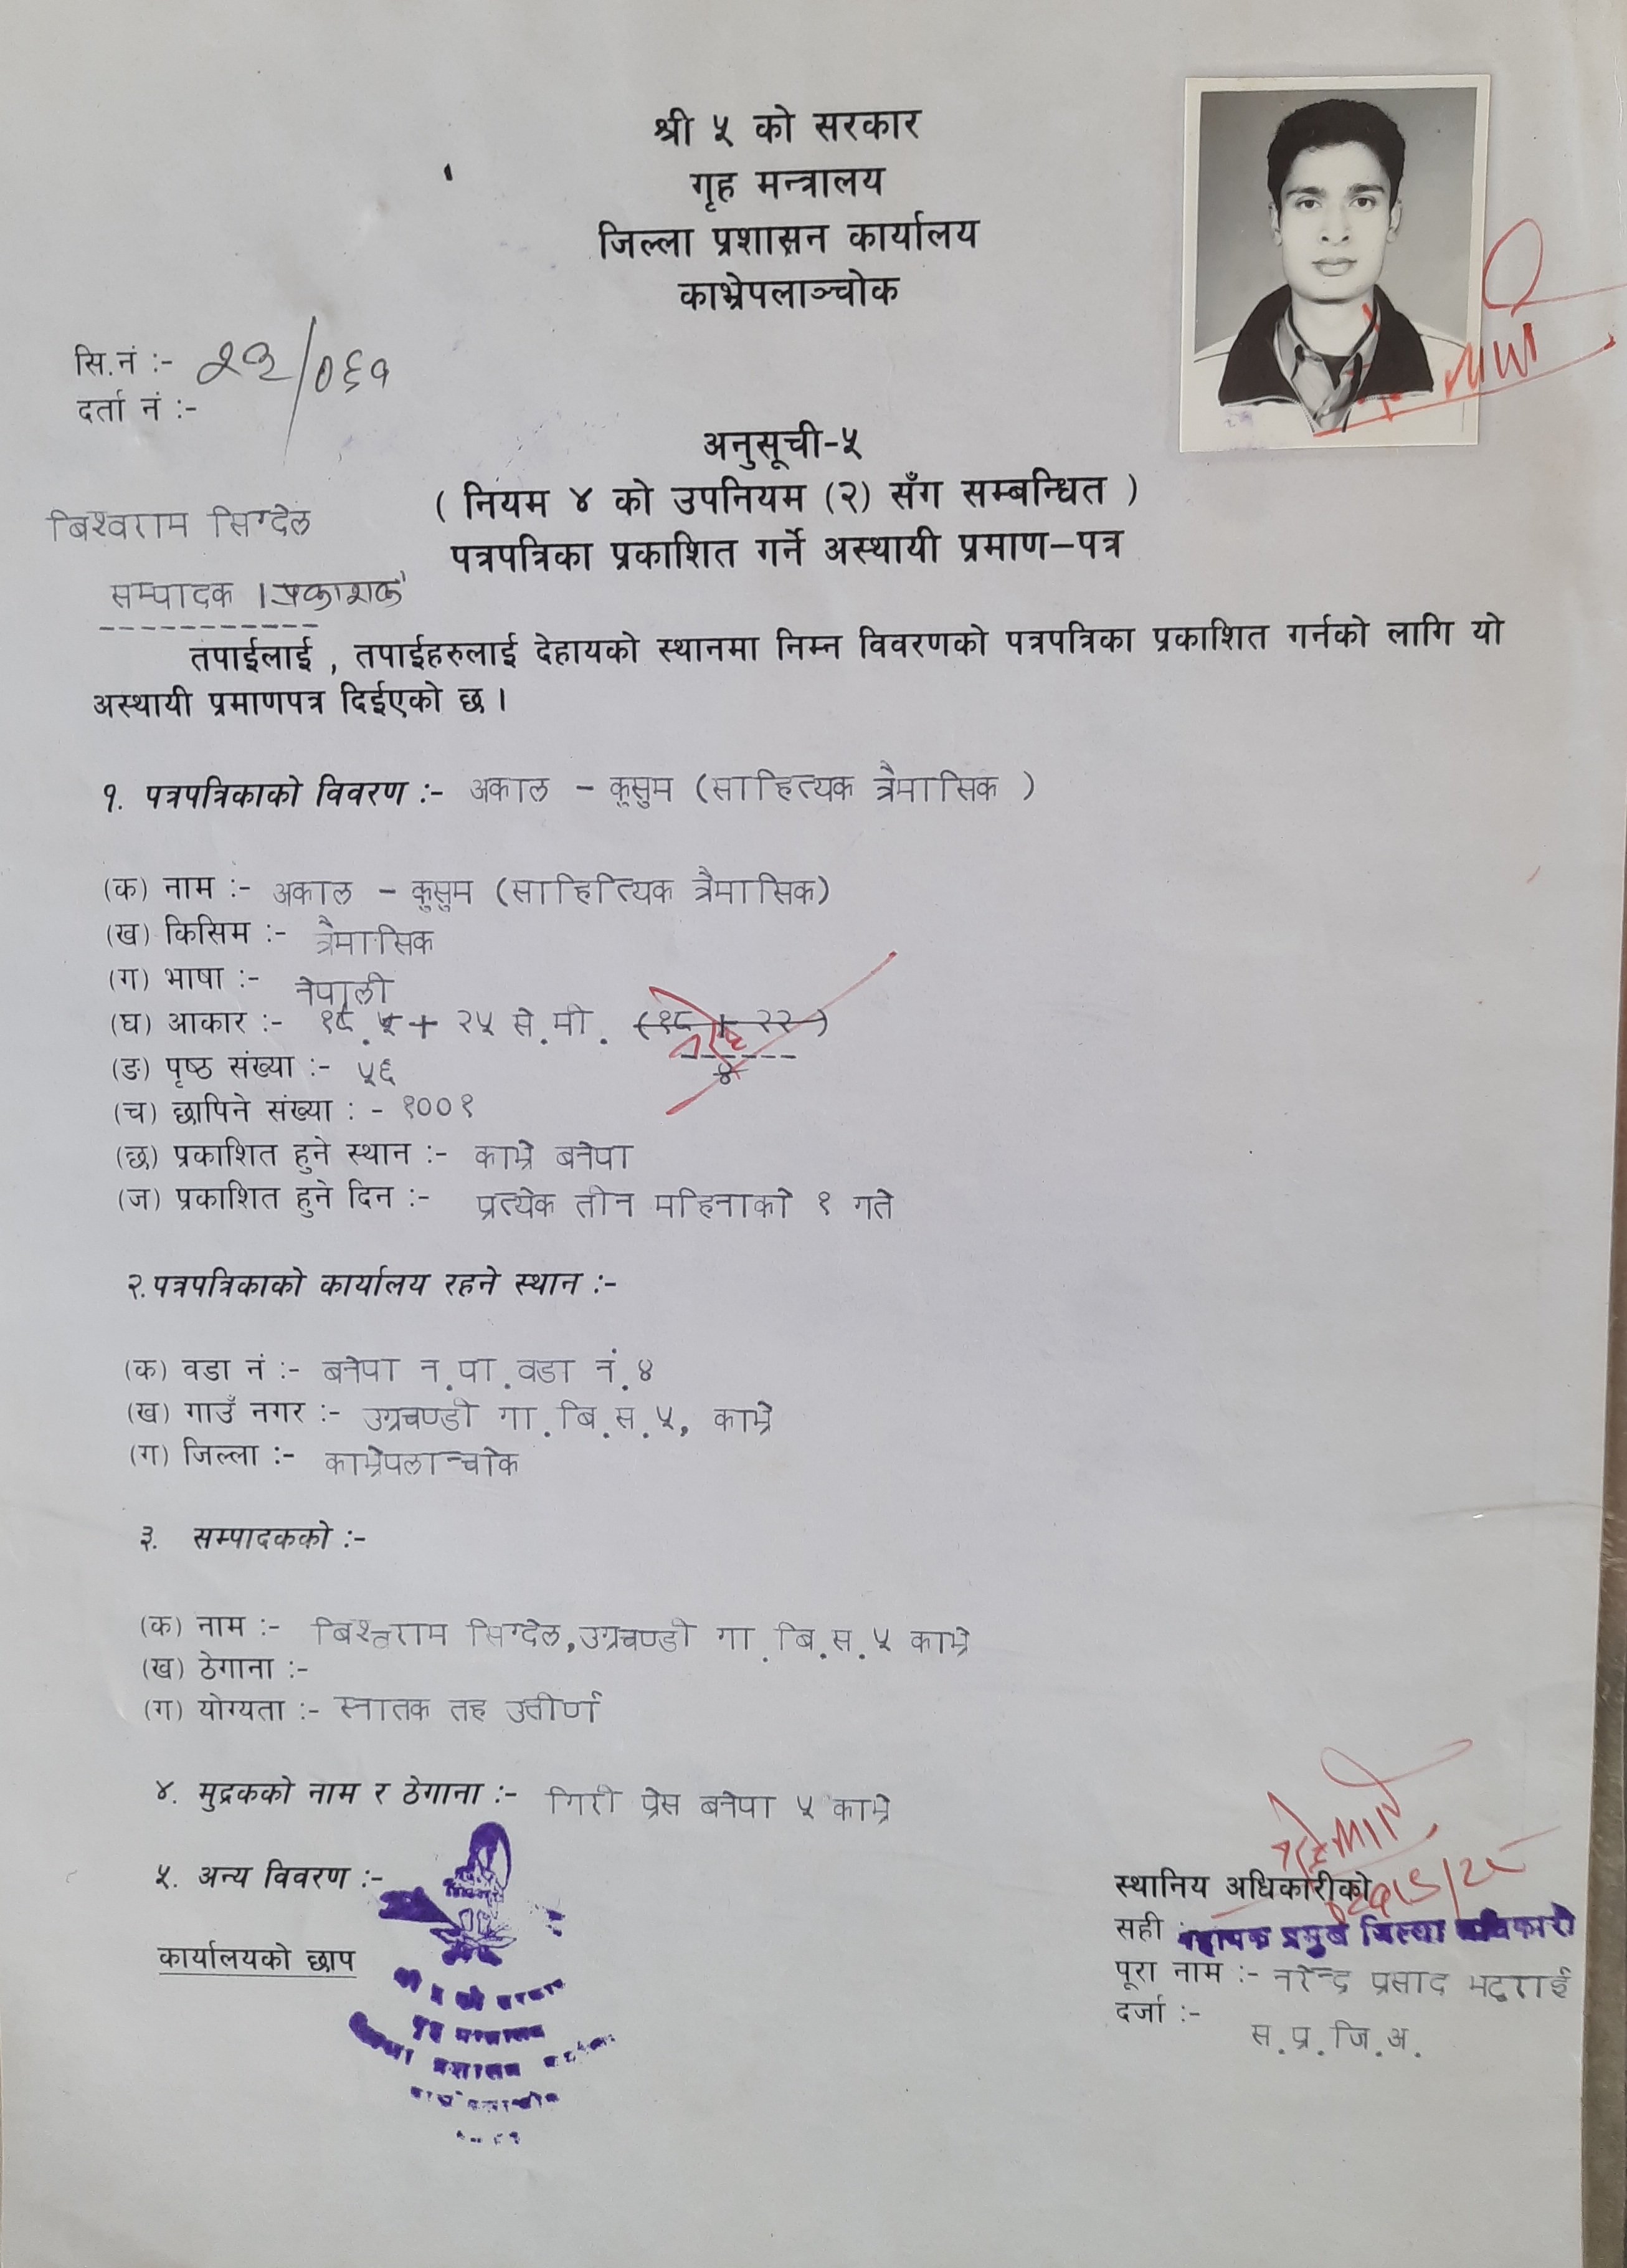 श्री ५ को सरकार
गृह मन्त्रालय
जिल्ला प्रशासन कार्यालय
काभ्रेपलाञ्चोक
सि.नं :- २३/०६१
दर्ता नं :-
अनुसूची-५
( नियम ४ को उपनियम (२) सँग सम्बन्धित )
पत्रपत्रिका प्रकाशित गर्ने अस्थायी प्रमाण-पत्र
बिश्वराम सिग्देल
सम्पादक । प्रकाशक
तपाईलाई , तपाईहरुलाई देहायको स्थानमा निम्न विवरणको पत्रपत्रिका प्रकाशित गर्नको लागि यो
अस्थायी प्रमाणपत्र दिईएको छ ।
१. पत्रपत्रिकाको विवरण :- अकाल - कुसुम (साहित्यक त्रैमासिक )
(क) नाम :- अकाल - कुसुम (साहित्यिक त्रैमासिक)
(ख) किसिम :- त्रैमासिक
(ग) भाषा :- नेपाली
(घ) आकार :- १८.५ + २५ से.मी. (१८ + २२)
४
(ङ) पृष्ठ संख्या :- ५६
(च) छापिने संख्या : - १००१
(छ) प्रकाशित हुने स्थान :- काभ्रे बनेपा
(ज) प्रकाशित हुने दिन :- प्रत्येक तीन महिनाको १ गते
२.पत्रपत्रिकाको कार्यालय रहने स्थान :-
(क) वडा नं :- बनेपा न.पा.वडा नं.४
(ख) गाउँ नगर :- उग्रचण्डी गा.बि.स.५, काभ्रे
(ग) जिल्ला :- काभ्रेपलान्चोक
३. सम्पादकको :-
(क) नाम :- बिश्वराम सिग्देल,उग्रचण्डी गा.बि.स.५ काभ्रे
(ख) ठेगाना :-
(ग) योग्यता :- स्नातक तह उत्तीर्ण
४. मुद्रकको नाम र ठेगाना :- गिरी प्रेस बनेपा ५ काभ्रे
५. अन्य विवरण :-
कार्यालयको छाप
स्थानिय अधिकारीको
सही : सहायक प्रमुख जिल्ला अधिकारी
पूरा नाम :- नरेन्द्र प्रसाद भट्टराई
दर्जा :- स.प्र.जि.अ.